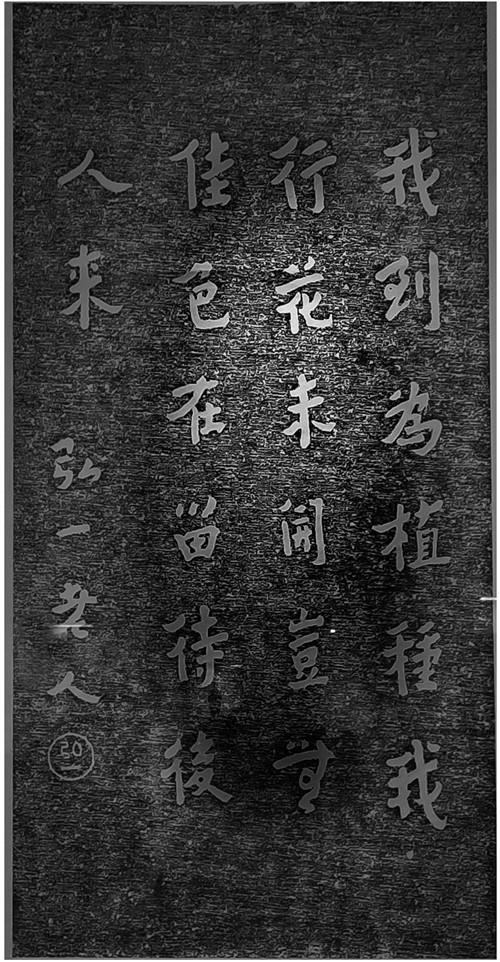 我到為植種我
行花未開豈無
佳色在留待後
人来
弘一 人
弘一